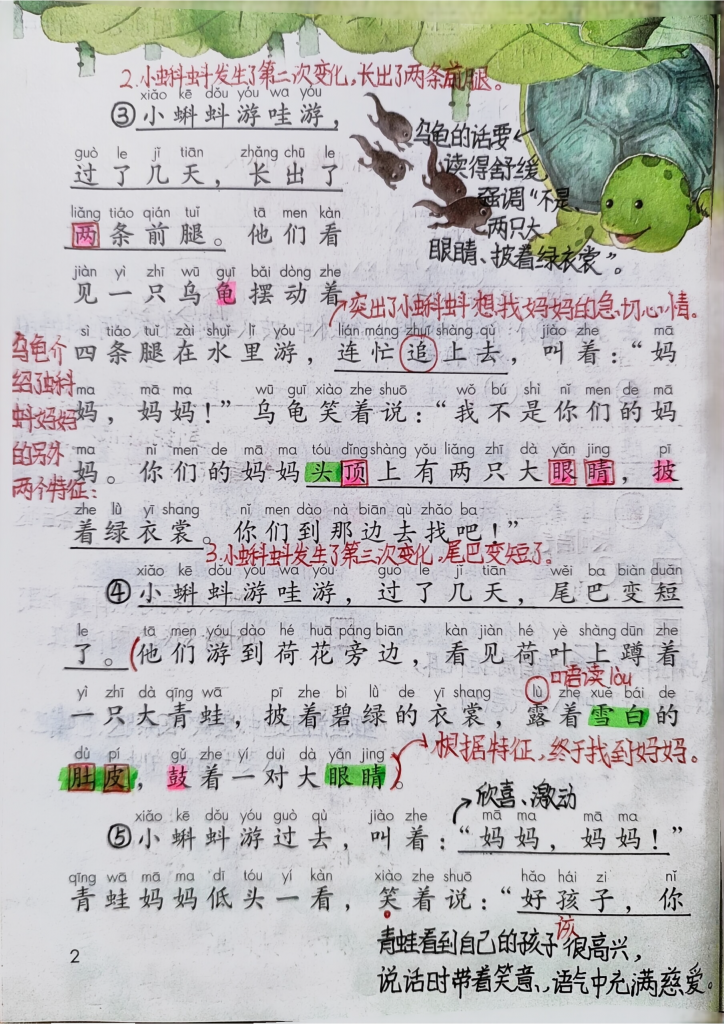 2.小蝌蚪发生了第二次变化,长出了两条前腿。
xiǎo kē dǒu yóu wa yóu
③小蝌蚪游哇游，
乌龟的话要
读得舒缓,
强调"不是、
两只大
眼睛、披着绿衣裳"。
guò le jǐ tiān zhǎng chū le
过了几天，长出了
liǎng tiáo qián tuǐ tā men kàn
两条前腿。他们看
jiàn yì zhī wū guī bǎi dòng zhe
见一只乌龟摆动着
突出了小蝌蚪想找妈妈的急切心情。
sì tiáo tuǐ zài shuǐ lǐ yóu lián máng zhuī shàng qù jiào zhe mā
四条腿在水里游，连忙追上去，叫着：“妈
乌龟介
绍了蝌
蚪妈妈
的另外
两个特征:
ma mā ma wū guī xiào zhe shuō wǒ bú shì nǐ men de mā
妈，妈妈！”乌龟笑着说：“我不是你们的妈
ma nǐ men de mā ma tóu dǐng shàng yǒu liǎng zhī dà yǎn jing pī
妈。你们的妈妈头顶上有两只大眼睛，披
zhe lǜ yī shang nǐ men dào nà biān qù zhǎo ba
着绿衣裳。你们到那边去找吧！”
3.小蝌蚪发生了第三次变化,尾巴变短了。
xiǎo kē dǒu yóu wa yóu guò le jǐ tiān wěi ba biàn duǎn
④小蝌蚪游哇游，过了几天，尾巴变短
le tā men yóu dào hé huā páng biān kàn jiàn hé yè shàng dūn zhe
了。他们游到荷花旁边，看见荷叶上蹲着
口语读lòu
yì zhī dà qīng wā pī zhe bì lǜ de yī shang lù zhe xuě bái de
一只大青蛙，披着碧绿的衣裳，露着雪白的
dù pí gǔ zhe yí duì dà yǎn jing
肚皮，鼓着一对大眼睛。
根据特征,终于找到妈妈。
欣喜、激动
xiǎo kē dǒu yóu guò qù jiào zhe mā ma mā ma
⑤小蝌蚪游过去，叫着：“妈妈，妈妈！”
qīng wā mā ma dī tóu yí kàn xiào zhe shuō hǎo hái zi nǐ
青蛙妈妈低头一看，笑着说：“好孩子，你
该
青蛙看到自己的孩子很高兴,
说话时带着笑意,语气中充满慈爱。
2